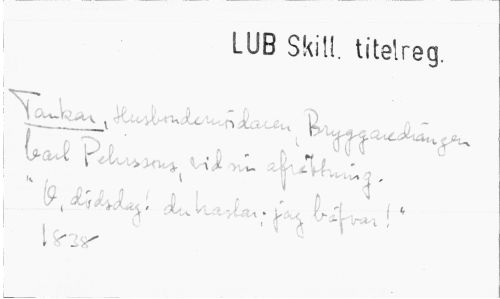 LUB Skill. titelreg.
Tankar, Husbondemördaren, Bryggaredrängen
Carl Pehrssons, vid sin afrättning.
"O, dödsdag! du nastar; jag bäfvar!"
1838